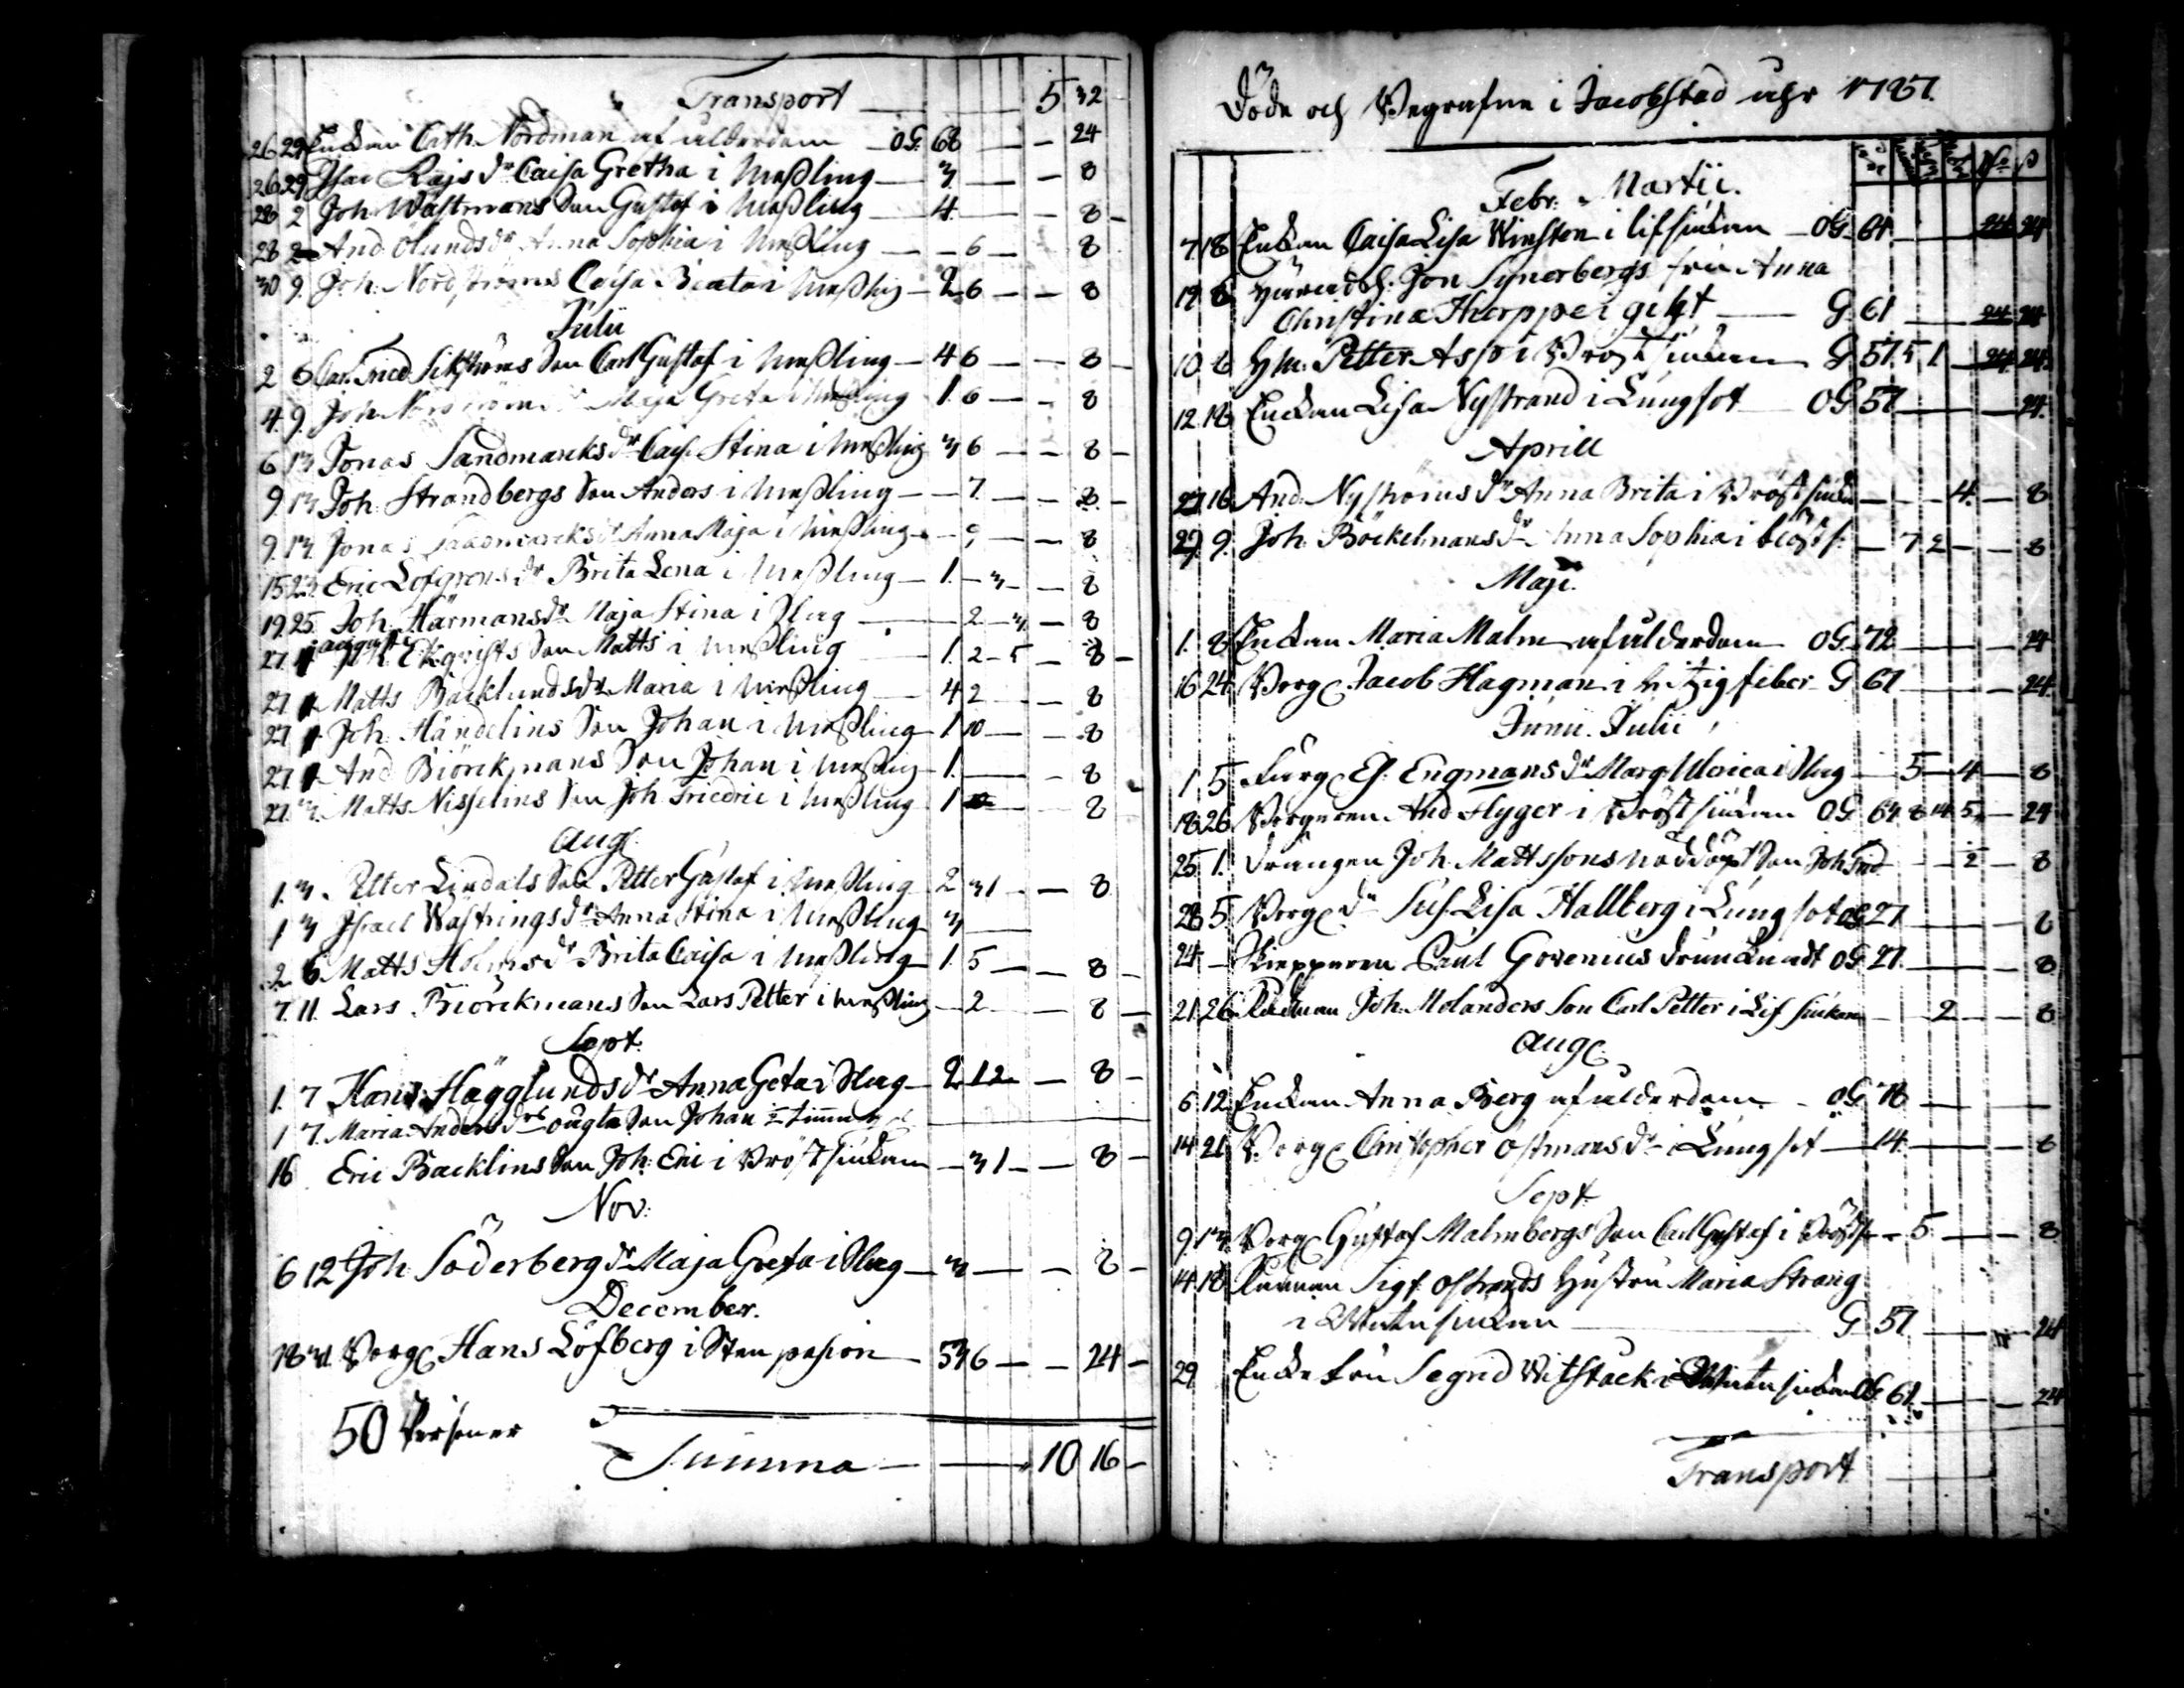 Transport — 5 32
26 29 Enckan Cath. Nordman af ålderdom — OG. 68 — — 24
26 29 Isac Rajs dr Caisa Gretha i Meßling — 3 — — 8
28 2 Joh. Wästmans Son Gustaf i Meßling — 4 — — 8 —
28 2 And. Ölunds dr Anna Sophia i Meßling — — 6 — 8
30 9. Joh. Nordströms Caisa Beata i Meßling — 2 6 — — 8
Julii
2 6 Carl Gustaf i Meßling — 4 6 — — 8 —
4 9. Joh. Maja Greta i Meßling 1 6 — — 8
6 13 Jonas Sandmarks dr Cajs. Stina i Meßling 3 6 — — 8 —
9 13 Joh. Strandbergs Son Anders i Meßling — — 7 — — 8 —
9. 13. Jonas Sandmarcks dr Anna Maja i Meßling — — 9 — — 8
15 23 Eric Löfgrens dr Brita Lena i Meßling — 1. — 3 — — 8
19 25 Joh. Härmans dr Maja Stina i Slag — 2 — 3 — 8
augusti
27 Ekqvists Son Matts i Meßling 1. 2 — 5 — 8 —
27 Matts Backlunds dr Maria i Meßling — 4 2 — — 8
27 Joh. Händelins Son Johan i Meßling — 1 10 — — 8
27 And Biörckmans Son Johan i Meßling — 1. — — 8
27 3. Matts Nisselins Son Joh. Friedric i Meßling 1 — — 8
Aug.
1. 3. Petter Lindals Son Petter Gustaf i Meßling 2 3 1 — — 8
1 3 Israel Wästrings dr Anna Stina i Meßling 3 —
2 6 Matts Holms dr Brita Caisa i Meßling — 1. 5 — — 8 —
7. 11. Lars Biörckmans Son Lars Petter i Meßling — 2 — — 8 —
Sept.
1. 7 Hans Hägglunds dr Anna Greta i Slag — 2 12 — 8 —
1 7. Maria Anders drs oägta Son Johan
16 Eric Backlins Son Joh. Eric i Bröstsiukan — 3 1 — — 8 —
Nov:
6 12 Joh. Söderberg dr Maja Greta i Slag — 3 — — 8 —
December.
18 31 Borg. Hans Löfberg i Sten pasion — 53 6 — — 24 —
50 Personer
Summa — 10 16 —
Döde och Begrafne i Jacobstad åhr 1787.
Febr. Martii.
7 18 Enckan Caisa Lisa Winsten i lifsiukan — OG. 64 — 24 24
19 8 Jon Synerbergs fru Anna
Christina Thorppe i gikt — G. 61 — 24 24
10 6 Petter Asp i Bröstsiukan G 57 5 1 — 24 24.
12 18 Enckan Lisa Nystrand i Lungsot — OG 57 — — 24.
Aprill
27 16 And. Nyströms dr Anna Brita i Bröstsiukan — — 4. — 8
29 9. Joh. Böckelmans dr Anna Sophia i bröst s. — 7 2 — — 8
Maji.
1. 8 Enckan Maria Malm af ålderdom OG. 72 — — 24
16 24 Borg. Jacob Hagman i hitzig feber — G 67 — — 24.
Junii. Julii
1 5 Engmans dr Marg. Ulrica i Slag — 5 — 4 — 8
18 26 Borgaren And Flyger i Bröstsiukan OG 63 8 14 5 — 24
25 1. Drängen Joh. Mattssons nöddöpt Son Joh. Frid — 2 — 8
28 5 Borg. dr Sus. Lisa Hallberg i Lungsot OG 27 — — 8
24 — Skepparen Paul Govenius druncknadt OG 27 — — 8
21 26 Joh. Molanders Son Carl Petter i Lifsiukan — 2 — — 8
Aug.
6 12 Enckan Anna Berg af ålderdom — OG 78 — —
14 21 Borg. Christopher Östmans dr i Lungsot — 14 — — 8
Sept.
9. 13. Borg. Gustaf Malmbergs Son Carl Gustaf i Bröstsi — 5 — — 8
14 18 Sigf. Östrands Hustru Maria Strang
i Wattusiukan — G. 57 — — 24
29 Encke fru Segrid Witstack i Wattusiukan OG 61 — — 24
Transport —